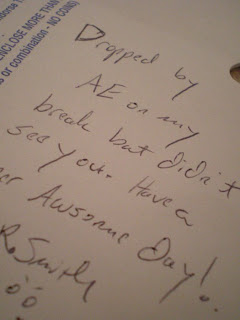 ENCLOSE MORE THAN
or combination - NO COINS
Dropped by
AE on my
break but didn't
see you. Have a
Awsome Day!
R. Smith